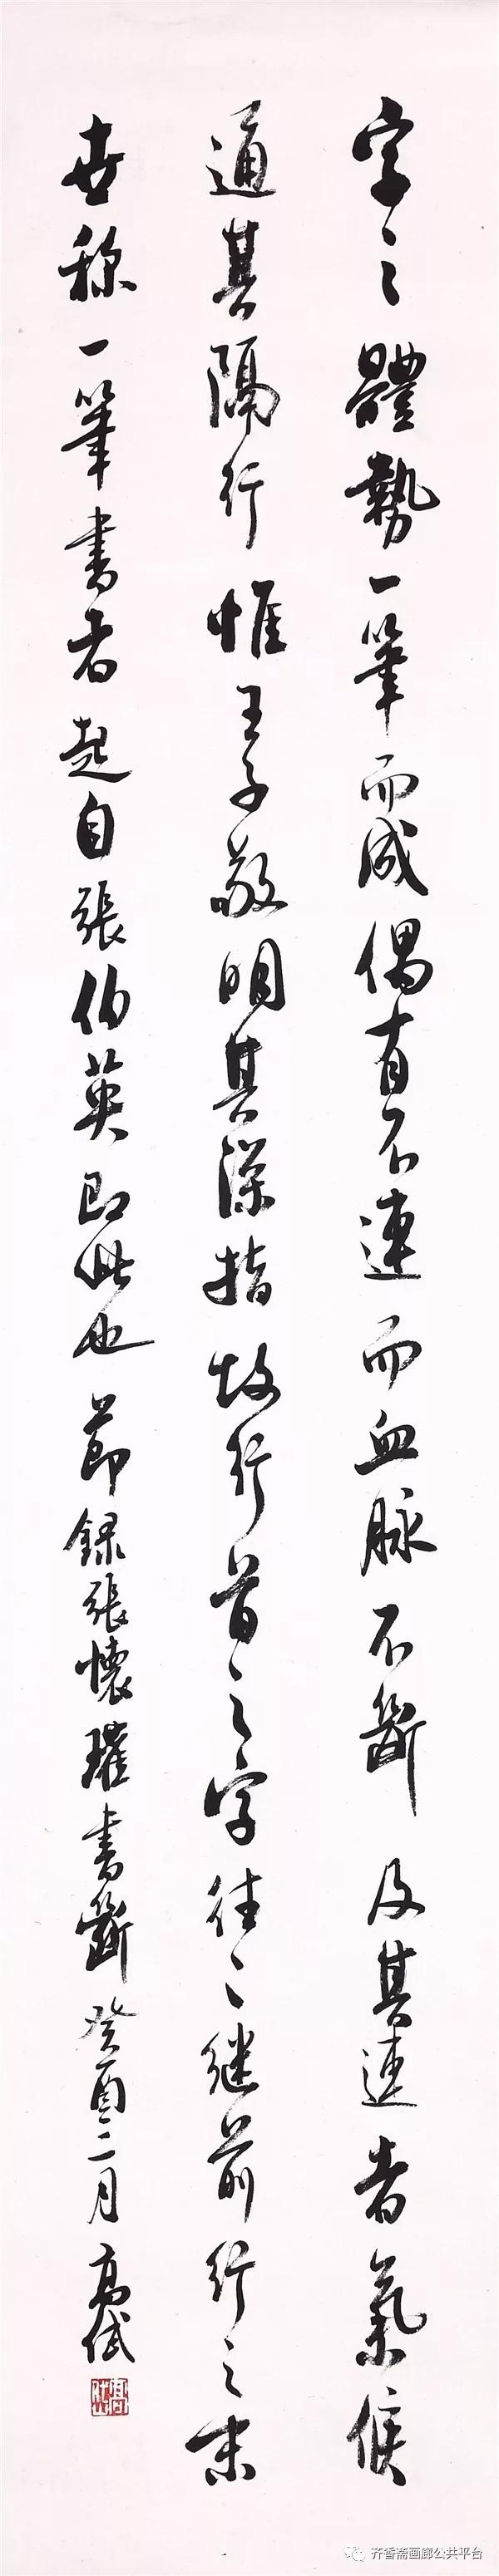 字之體勢一筆而成偶有不連而血脉不斷及其連者氣候
通其隔行惟王子敬明其深指故行首之字往之继前行之末
世称一筆書者起自張伯英即此也節録張懷瓘書斷癸酉二月高式
齐香斋画廊公共平台